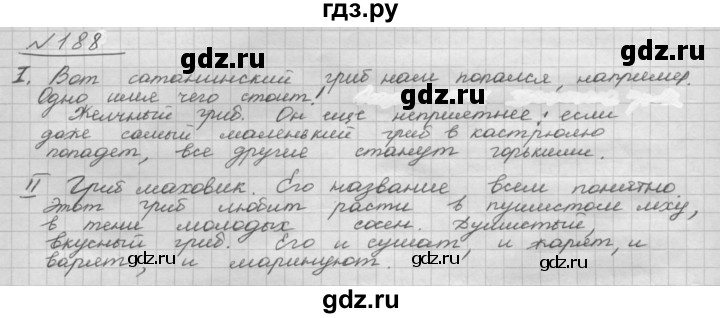 гдз.ру
№188
I. Вот сатанинский гриб нам попался, например.
Одно имя чего стоит!
Желчный гриб. Он еще неприятнее: если
даже самый маленький гриб в кастрюлю
попадет, все другие станут горькими.
II Гриб маховик. Его название всем понятно.
Этот гриб любит расти в пушистом мху,
в тени молодых сосен. Душистый,
вкусный гриб. Его и сушат, и жарят, и
варят, и маринуют.
gdz.ru
gdz.ru
gdz.ru
gdz.ru
gdz.ru
gdz.ru
gdz.ru
gdz.ru
gdz.ru
gdz.ru